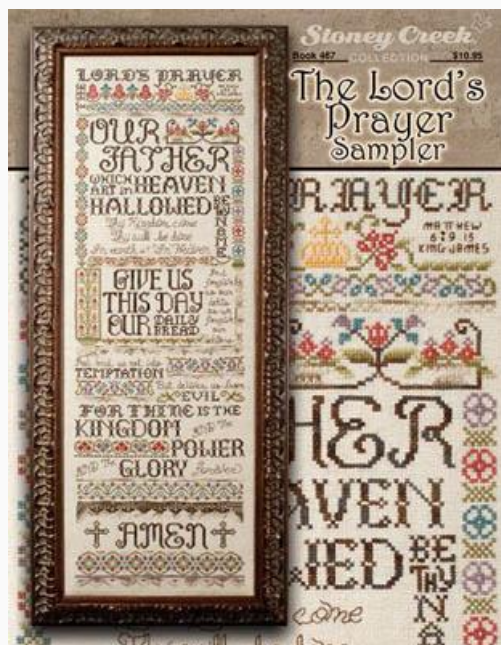 Stoney Creek
Book 467 COLLECTION $10.95
The Lord's
Prayer
Sampler
LORD'S PRAYER
OUR
FATHER
WHICH
ART in HEAVEN
HALLOWED
BE THY NAME
Thy Kingdom come
Thy will be done
In earth as in Heaven
GIVE US
THIS DAY
OUR DAILY
BREAD
And lead us not into
TEMPTATION
But deliver us from
EVIL
FOR THINE IS THE
KINGDOM AND The
POWER
AND The
GLORY Forever
AMEN
PRAYER
MATTHEW
6:9 15
KING JAMES
HER
AVEN
WED BE
THY
NA
come